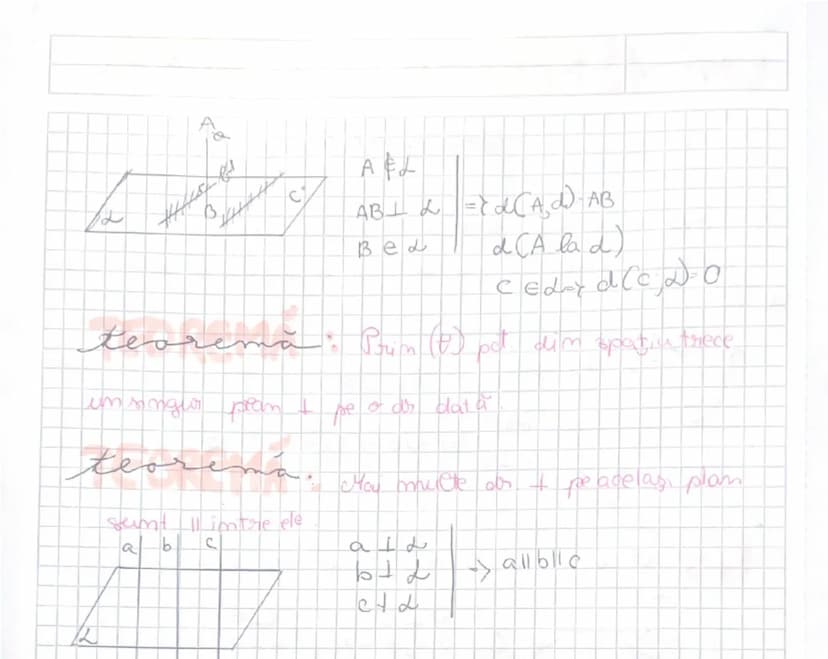 A
a
d
B
C
α
A ∉ α
AB ⊥ α
B ∈ α
=> d(A,α)=AB
d(A la α)
C ∈ α => d(C,α)=0
TEOREMĂ
teoremă: Prin (∀) pct din spațiu trece
un singur plan ⊥ pe o dr dată
TEOREMĂ
teoremă: Mai multe dr ⊥ pe același plan
sunt || între ele
a b c
α
a ⊥ α
b ⊥ α
c ⊥ α
=> a||b||c